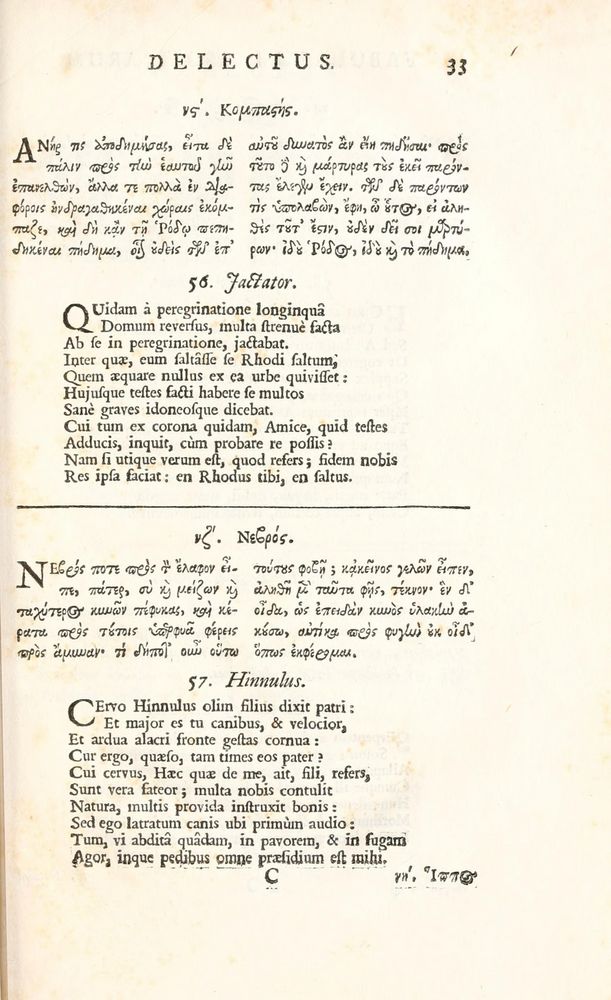 DELECTUS.
33
νϛʹ. Κομπαςής.
ΑΝήρ τις ἀποδημήσας, εἶτα δὲ
πάλιν πρὸς τὴν ἑαυτοῦ γῆν
ἐπανελθὼν, ἄλλα τε πολλὰ ἐν δια-
φόροις ἠνδραγαθηκέναι χώραις ἐκόμ-
παζε, καὶ δὴ κἂν τῇ Ῥόδῳ πεπη-
δηκέναι πήδημα, οἷον οὐδεὶς τῶν ἐπ'
αὐτοῦ δυνατὸς ἂν εἴη πηδῆσαι· πρὸς
τοῦτο δὲ καὶ μάρτυρας τοὺς ἐκεῖ παρόν-
τας ἔλεγεν ἔχειν. τῶν δὲ παρόντων
τὶς ὑπολαβὼν, ἔφη, ὦ οὗτος, εἰ ἀλη-
θὲς τοῦτ' ἐςιν, οὐδὲν δεῖ σοι μαρτύ-
ρων· ἰδοὺ Ῥόδος, ἰδοὺ καὶ τὸ πήδημα.
56. Jactator.
QUidam à peregrinatione longinquâ
Domum reversus, multa strenuè facta
Ab se in peregrinatione, jactabat.
Inter quæ, eum saltâsse se Rhodi saltum;
Quem æquare nullus ex ea urbe quivisset:
Hujusque testes facti habere se multos
Sanè graves idoneosque dicebat.
Cui tum ex corona quidam, Amice, quid testes
Adducis, inquit, cùm probare re possis?
Nam si utique verum est, quod refers; fidem nobis
Res ipsa faciat: en Rhodus tibi, en saltus.
νζʹ. Νεβρός.
ΝΕβρός ποτε πρὸς τὸν ἔλαφον εἶ-
πε, πάτερ, σὺ καὶ μείζων καὶ
ταχύτερος κυνῶν πέφυκας, καὶ κέ-
ρατα πρὸς τούτοις ὑπερφυᾶ φέρεις
πρὸς ἄμυναν· τί δήποτ' οὖν οὕτω
τούτους φοβῇ; κἀκεῖνος γελῶν εἶπεν,
ἀληθῆ μὲν ταῦτα φῂς, τέκνον· ἓν δὲ
οἶδα, ὡς ἐπειδὰν κυνὸς ὑλακὴν ἀ-
κούσω, αὐτίκα πρὸς φυγὴν οὐκ οἶδ'
ὅπως ἐκφέρομαι.
57. Hinnulus.
CErvo Hinnulus olim filius dixit patri:
Et major es tu canibus, & velocior,
Et ardua alacri fronte gestas cornua:
Cur ergo, quæso, tam times eos pater?
Cui cervus, Hæc quæ de me, ait, fili, refers,
Sunt vera fateor; multa nobis contulit
Natura, multis provida instruxit bonis:
Sed ego latratum canis ubi primùm audio:
Tum, vi abditâ quâdam, in pavorem, & in fugam
Agor, inque pedibus omne præsidium est mihi.
C
νηʹ. Ἵππος